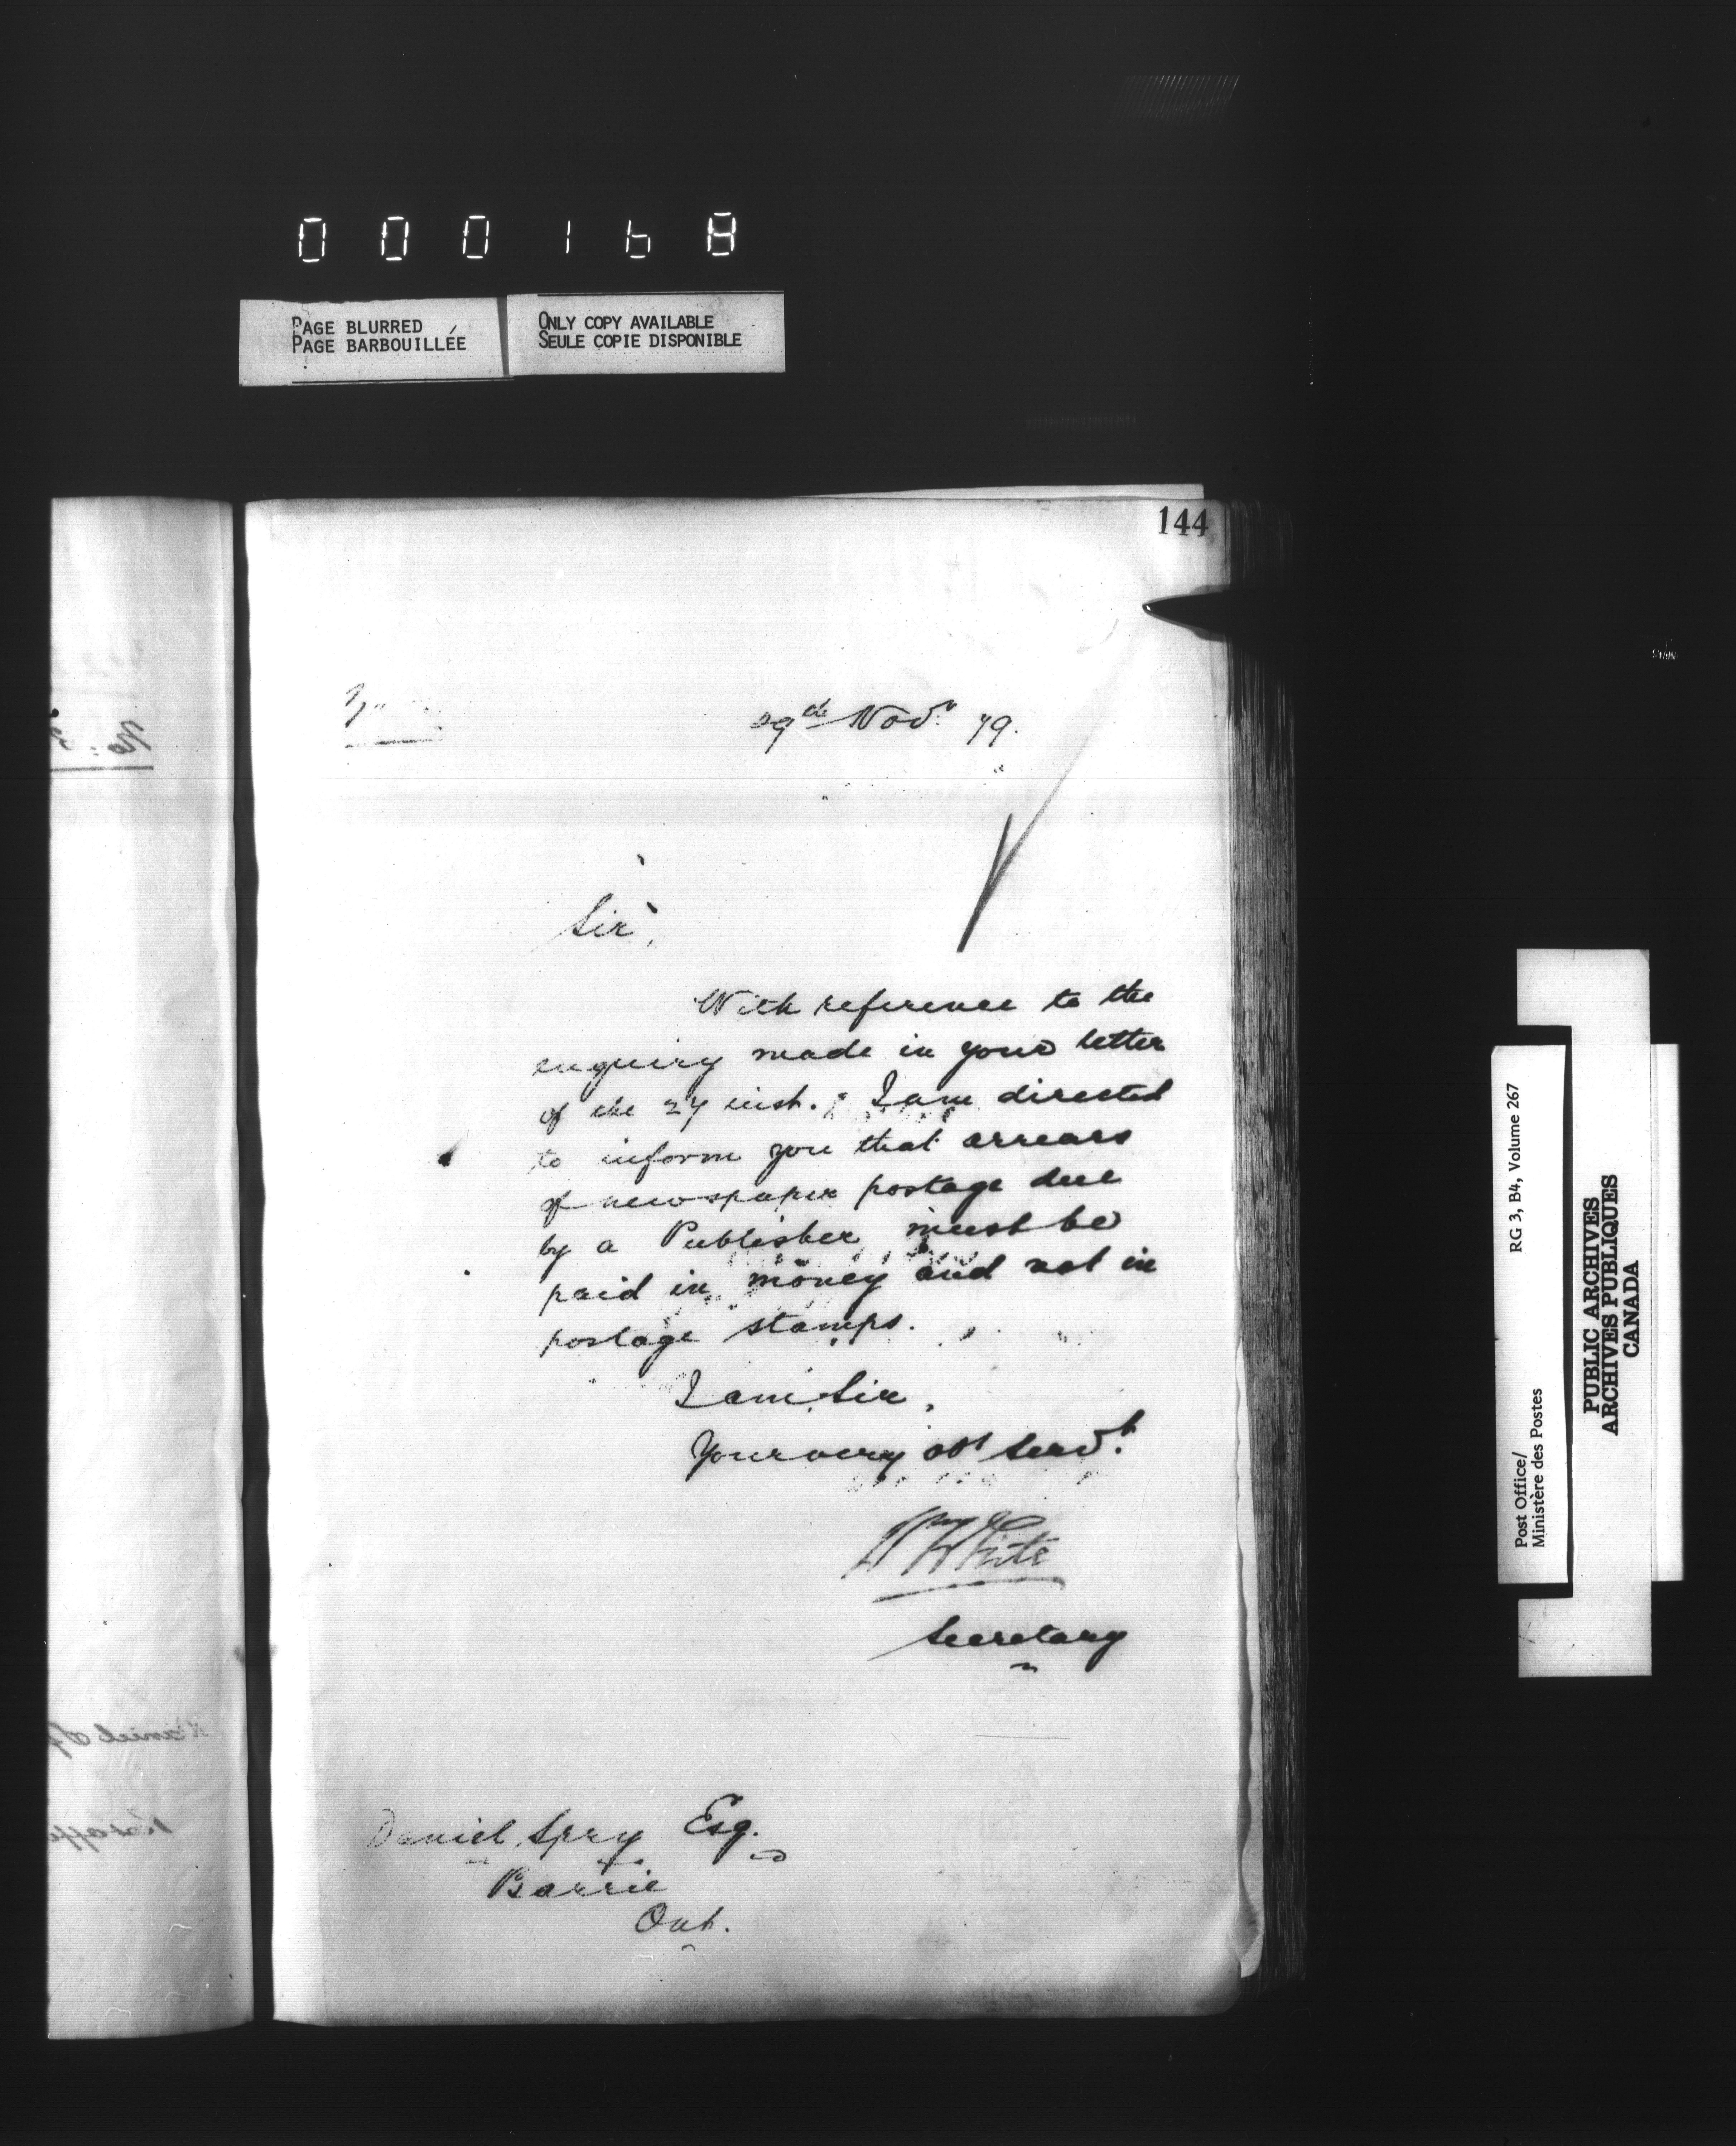 000168
PAGE BLURRED
PAGE BARBOUILLÉE
ONLY COPY AVAILABLE
SEULE COPIE DISPONIBLE
144
29th Nov. 79.
Sir,
With reference to the
enquiry made in your letter
of the 27 inst. I am directed
to inform you that arrears
of newspaper postage due
by a Publisher must be
paid in money and not in
postage stamps.
I am Sir,
Your very obt Servt.
Wm White
Secretary
Daniel Spry Esq.
Barrie
Ont.
RG 3, B4, Volume 267
Post Office/
Ministère des Postes
PUBLIC ARCHIVES
ARCHIVES PUBLIQUES
CANADA